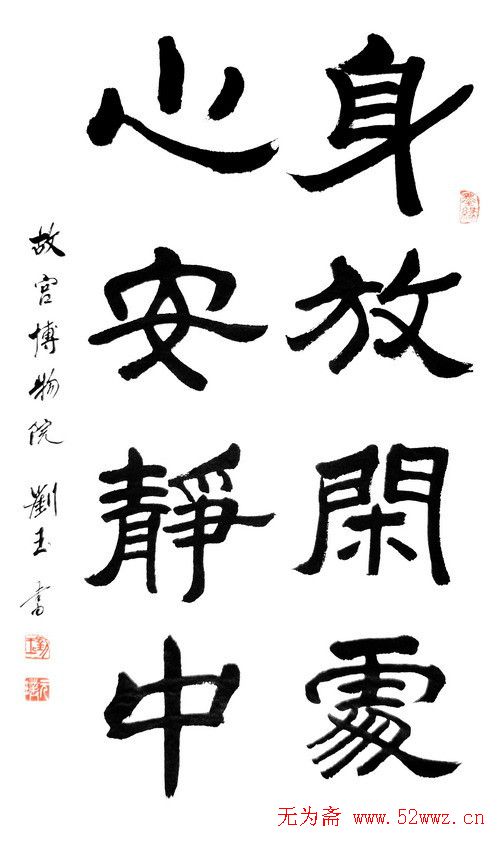 身放閑處
心安靜中
故宮博物院 劉玉書
无为斋 www.52wwz.cn